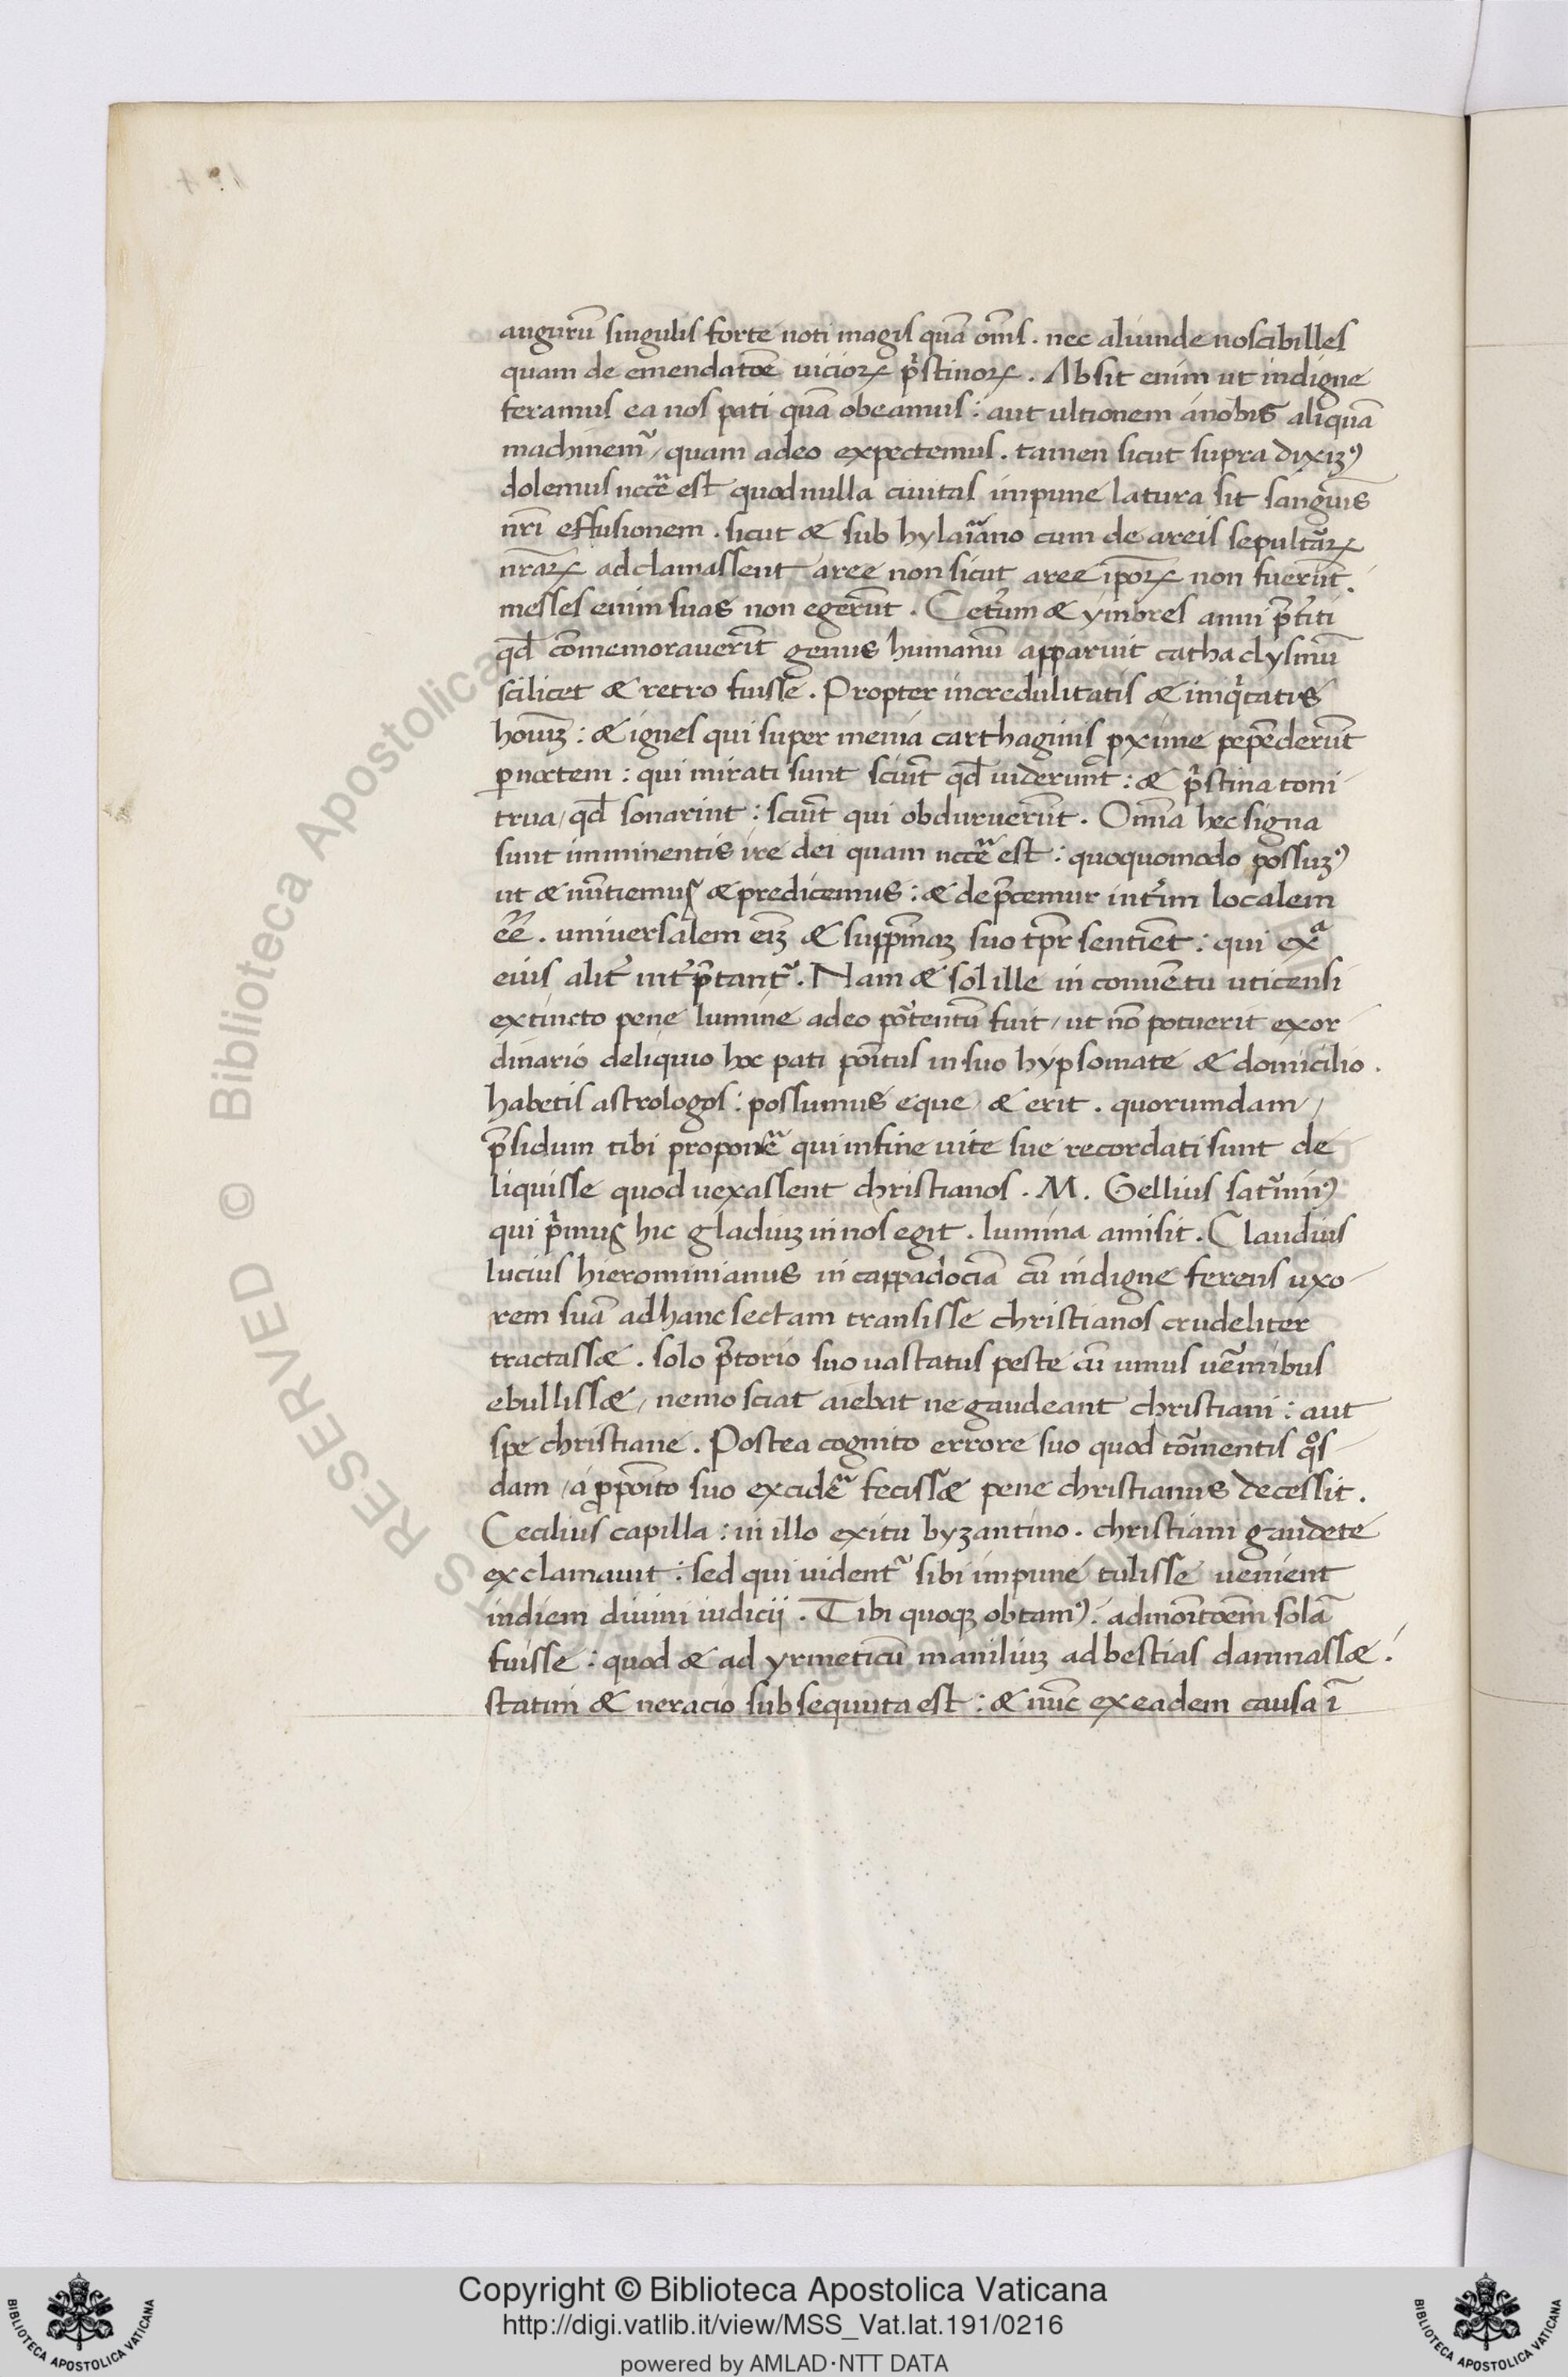 augurũ singulis forte noti magis quã om̃s. nec aliunde noscibilles
quam de emendatoẽ uicioꝝ pͥstinoꝝ. Absit enim ut indigne
feramus ea nos pati quã obeamus: aut ultionem anobis aliquã
machinem᷑/ quam adeo expectemus. tamen sicut supra dixiꝫꝰ
dolemus nccẽ est quod nulla ciuitas impune latura sit sanguĩs
nrĩ effusionem. sicut & sub hylariano cum de areis sepultũrꝝ
nrãꝝ adclamassent aree non sicut aree ipõꝝ non fuerũt.
messes enim suas non egerũt. Cetȝum & ymbres anni p̃t̃iti
qđ cõmemorauerĩt genus humanũ apparuit cathaclysmũ
scilicet & retro fuisse. Propter incredulitatis & iniqͥtatis
houĩꝫ: & ignes qui super menia carthaginis ꝓxime pepẽderũt
ꝑnoctem: qui mirati sunt sciũt qđ uiderunt: & pͥstina toni-
trua/ qđ sonarint: sciũt qui obduruerũt. Om̃ia hec signa
sunt imminentis ire dei quam nccẽ est: quoquomodo possuꝫꝰ
ut & nũtiemus & predicemus: & dep̃cemur int̃im localem
eẽ. uniuersalem eĩꝫ & supp̃maꝫ suo tp̃r sentiẽt: qui exͣ
eius alit̃ int̃p̃tant᷑. Nam & sol ille in conuẽtu uticensi
extincto pene lumine adeo põtentũ fuit/ ut nõ potuerit exor-
dinario deliquio hoc pati põitus in suo hypsomate & domicilio.
habetis astrologos: possumus eque & erit. quorumdam/
p̃sidum tibi proponẽ qui in fine uite sue recordati sunt de
liquisse quod uexassent christianos. M. Gellius saturninꝰ
qui pͥmus hic gladiuꝫ in nos egit. lumina amisit. Claudius
lucius hierominianus in cappadociã cũ indigne ferens uxo-
rem suã ad hanc sectam transisse christianos crudeliter
tractass&. solo p̃torio suo uastatus peste cũ uiuus uẽmibus
ebulliss&/ nemo sciat aiebat ne gaudeant christiani: aut
spe christiane. Postea cognito errore suo quod tõmentis qͦs-
dam/ a ꝓpoĩto suo excidẽ feciss& pene christianus decessit.
Cecilius capilla: in illo exitu byzantino. christiani gaudete
exclamauit: sed qui uident᷑ sibi impune tulisse uenient
indiem diuini iudicij. Tibi quoqꝫ obtamꝰ. admonĩtoẽm solã
fuisse: quod & ad yrmeticũ maniliuꝫ ad bestias damnass&.
statim & neracio subsequuta est: & nũc ex eadem causa ĩ
Copyright © Biblioteca Apostolica Vaticana
http://digi.vatlib.it/view/MSS_Vat.lat.191/0216
powered by AMLAD·NTT DATA